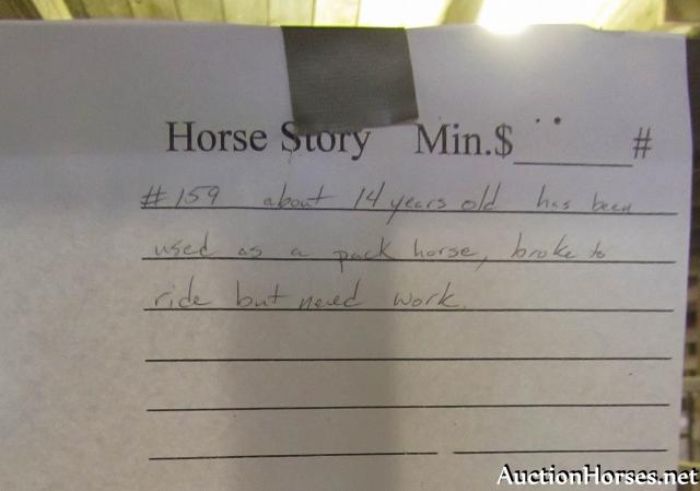 Horse Story Min.$______ #
#159 about 14 years old has been
used as a pack horse, broke to
ride but need work.
AuctionHorses.net